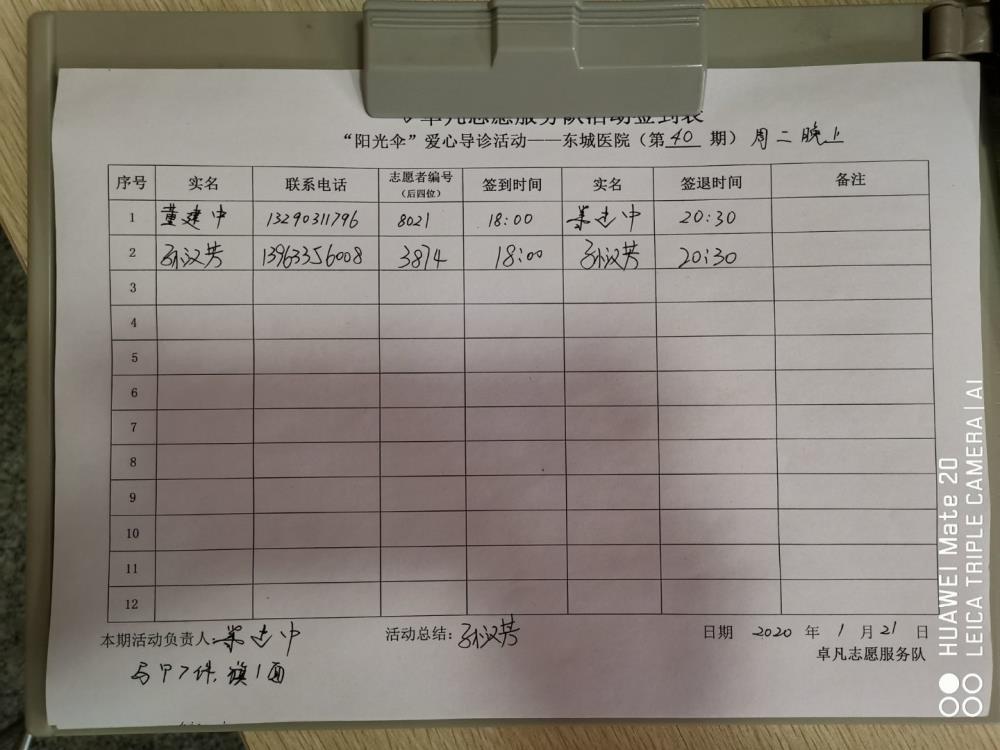 卓凡志愿服务队活动签到表
“阳光伞”爱心导诊活动——东城医院（第40期）周二晚上
序号 实名 联系电话 志愿者编号（后四位） 签到时间 实名 签退时间 备注
1 董建中 13290311796 8021 18:00 董建中 20:30
2 孙汉芳 13963356008 3874 18:00 孙汉芳 20:30
3
4
5
6
7
8
9
10
11
12
本期活动负责人:董建中 活动总结:孙汉芳 日期 2020 年 1 月 21 日
卓凡志愿服务队
马甲7件,旗1面
HUAWEI Mate 20
LEICA TRIPLE CAMERA | AI